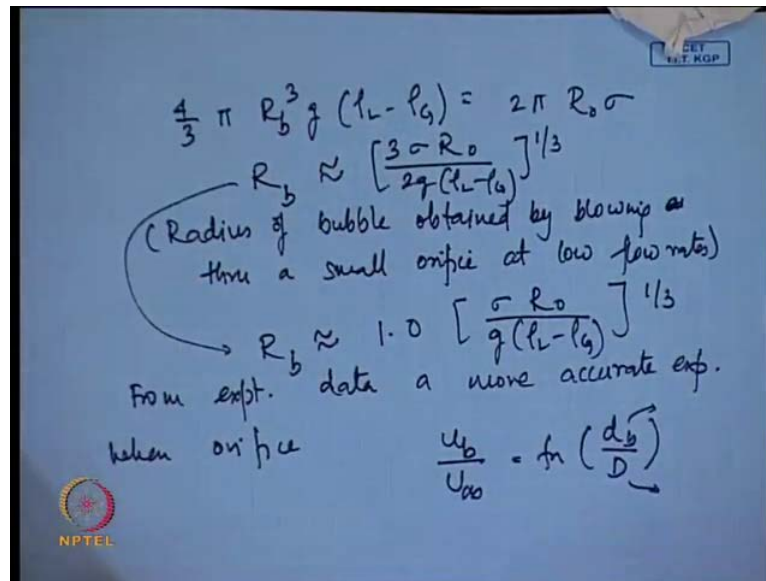 CET
I.I.T. KGP
4/3 π R_b^3 g (ρ_L - ρ_G) = 2π R_0 σ
R_b ≈ [3σ R_0 / 2g(ρ_L - ρ_G)]^1/3
(Radius of bubble obtained by blowing
thru a small orifice at low flow rates)
R_b ≈ 1.0 [σ R_0 / g(ρ_L - ρ_G)]^1/3
From expt. data a more accurate exp.
when orifice u_b / u_∞ = fn (d_b / D)
NPTEL